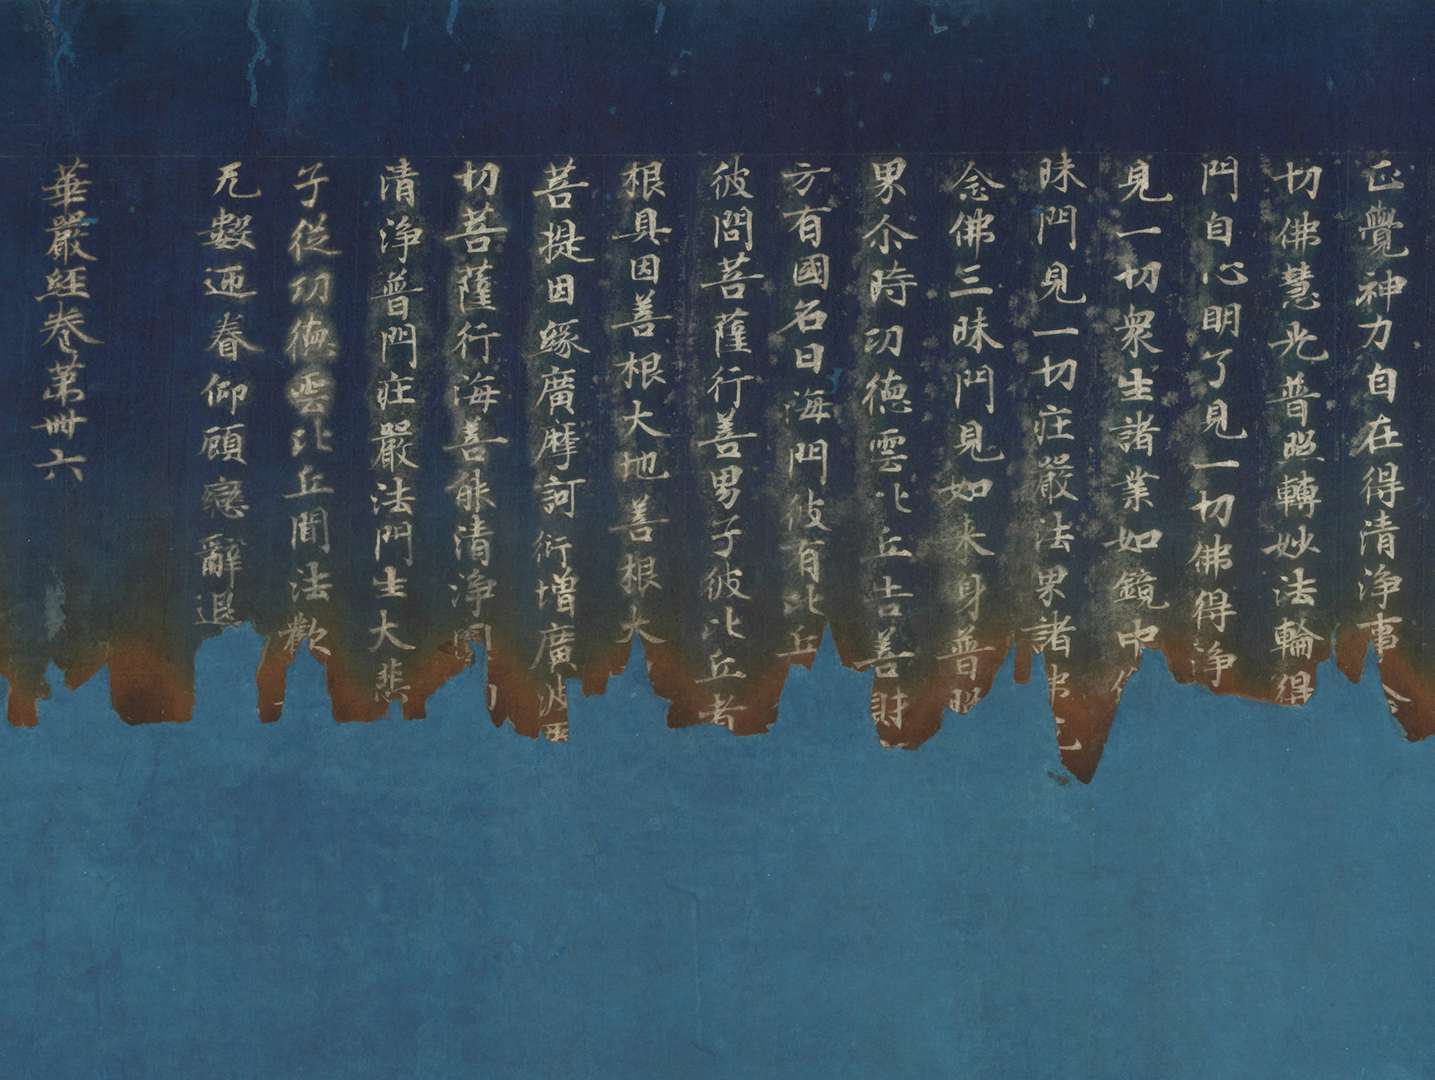 正覺神力自在得清浄事念
切佛慧光普照轉妙法輪得
門自心明了見一切佛得浄
見一切衆生諸業如鏡中
昧門見一切庄嚴法界諸佛
念佛三昧門見如来身普照
界尒時功徳雲比丘告善財
方有國名曰海門彼有比丘
彼問菩薩行善男子彼比丘者
根具因善根大地善根大
菩提因緣廣摩訶衍增廣波
切菩薩行海善能清浄
清浄普門庄嚴法門生大悲
子從功徳雲比丘聞法歡
无數迊眷仰顧戀辭退
華嚴経巻第卌六